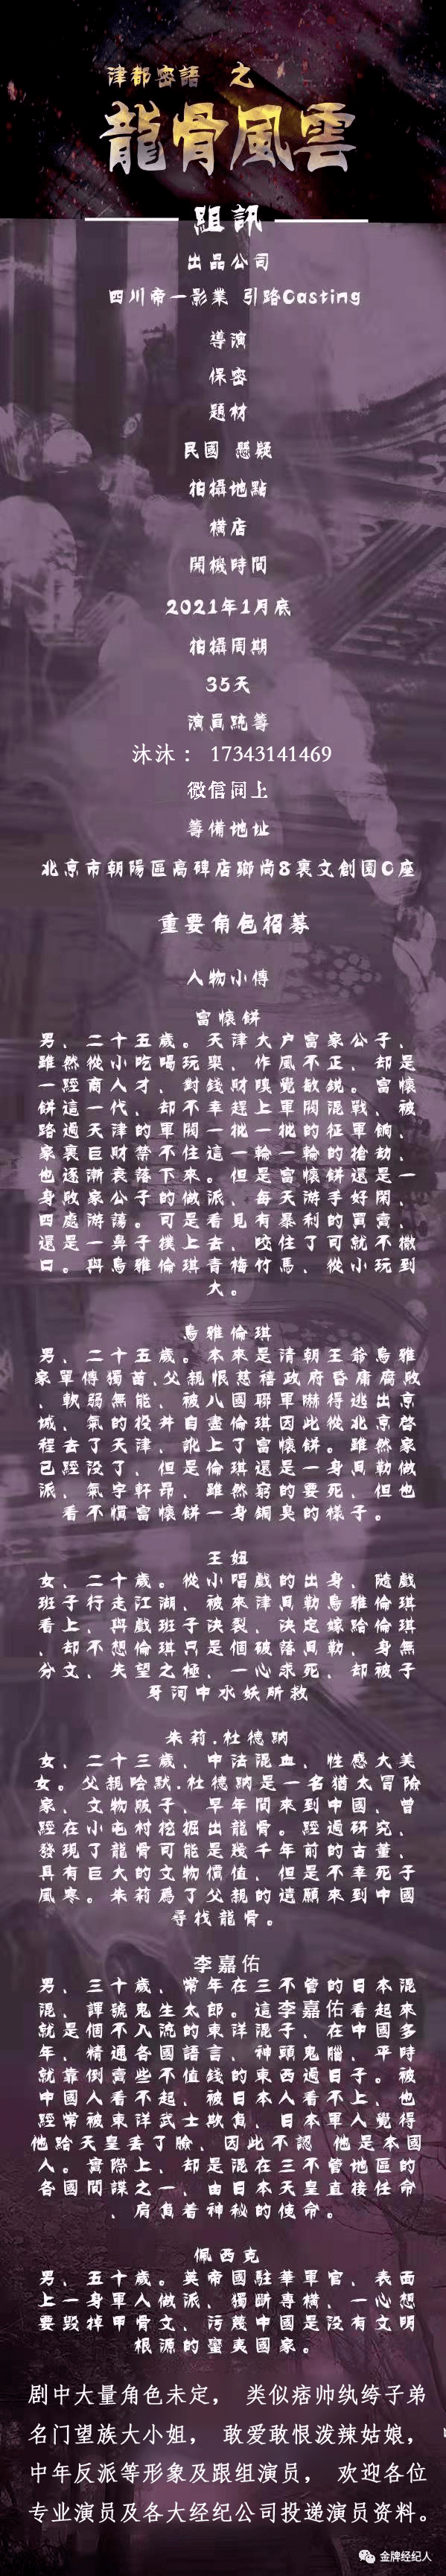 津都密語 之
龍骨風雲
組訊
出品公司
四川帝一影業 引路Casting
導演
保密
題材
民國 懸疑
拍攝地點
橫店
開機時間
2021年1月底
拍攝周期
35天
演員統籌
沐沐： 17343141469
微信同上
籌備地址
北京市朝陽區高碑店鄉尚8裏文創園C座
重要角色招募
人物小傳
富懷餅
男、二十五歲。天津大户富家公子、
雖然從小吃喝玩樂、作風不正、却是
一經商人才、對錢財嗅覺敏銳。富懷
餅這一代、却不幸趕上軍閥混戰、被
路過天津的軍閥一批一批的征軍餉、
家裏巨財禁不住這一輪一輪的搶劫、
也逐漸衰落下來。但是富懷餅還是一
身敗家公子的做派、每天游手好閑、
四處游蕩。可是看見有暴利的買賣、
還是一鼻子撲上去、咬住了可就不撒
口。與烏雅倫琪青梅竹馬、從小玩到
大。
烏雅倫琪
男、二十五歲。本來是清朝王爺烏雅
家單傳獨苗.父親恨慈禧政府昏庸腐敗
、軟弱無能、被八國聯軍嚇得逃出京
城、氣的投井自盡倫琪因此從北京啓
程去了天津、訛上了富懷餅。雖然家
已經没了、但是倫琪還是一身貝勒做
派、氣宇軒昂、雖然窮的要死、但也
看不慣富懷餅一身銅臭的樣子。
王妞
女、二十歲。從小唱戲的出身、隨戲
班子行走江湖、被來津貝勒烏雅倫琪
看上、與戲班子決裂、決定嫁給倫琪
、却不想倫琪只是個破落貝勒、身無
分文、失望之極、一心求死、却被子
牙河中水妖所救
朱莉.杜德納
女、二十三歲、中法混血、性感大美
女。父親哈默.杜德納是一名猶太冒險
家、文物販子、早年間來到中國、曾
經在小屯村挖掘出龍骨。經過研究、
發現了龍骨可能是幾千年前的古董、
具有巨大的文物價值、但是不幸死于
風寒。朱莉爲了父親的遺願來到中國
尋找龍骨。
李嘉佑
男、三十歲、常年在三不管的日本混
混、諢號鬼生太郎。這李嘉佑看起來
就是個不入流的東洋混子、在中國多
年、精通各國語言、神頭鬼腦、平時
就靠倒賣些不值錢的東西過日子。被
中國人看不起、被日本人看不上、也
經常被東洋武士欺負、日本軍人覺得
他給天皇丢了臉、因此不認 他是本國
人。實際上、却是混在三不管地區的
各國間諜之一、由日本天皇直接任命
、肩負着神秘的使命。
佩西克
男、五十歲。英帝國駐華軍官、表面
上一身軍人做派、獨斷專橫、一心想
要毀掉甲骨文、污蔑中國是没有文明
根源的蠻夷國家。
剧中大量角色未定， 类似痞帅纨绔子弟
名门望族大小姐， 敢爱敢恨泼辣姑娘，
中年反派等形象及跟组演员， 欢迎各位
专业演员及各大经纪公司投递演员资料。
金牌经纪人